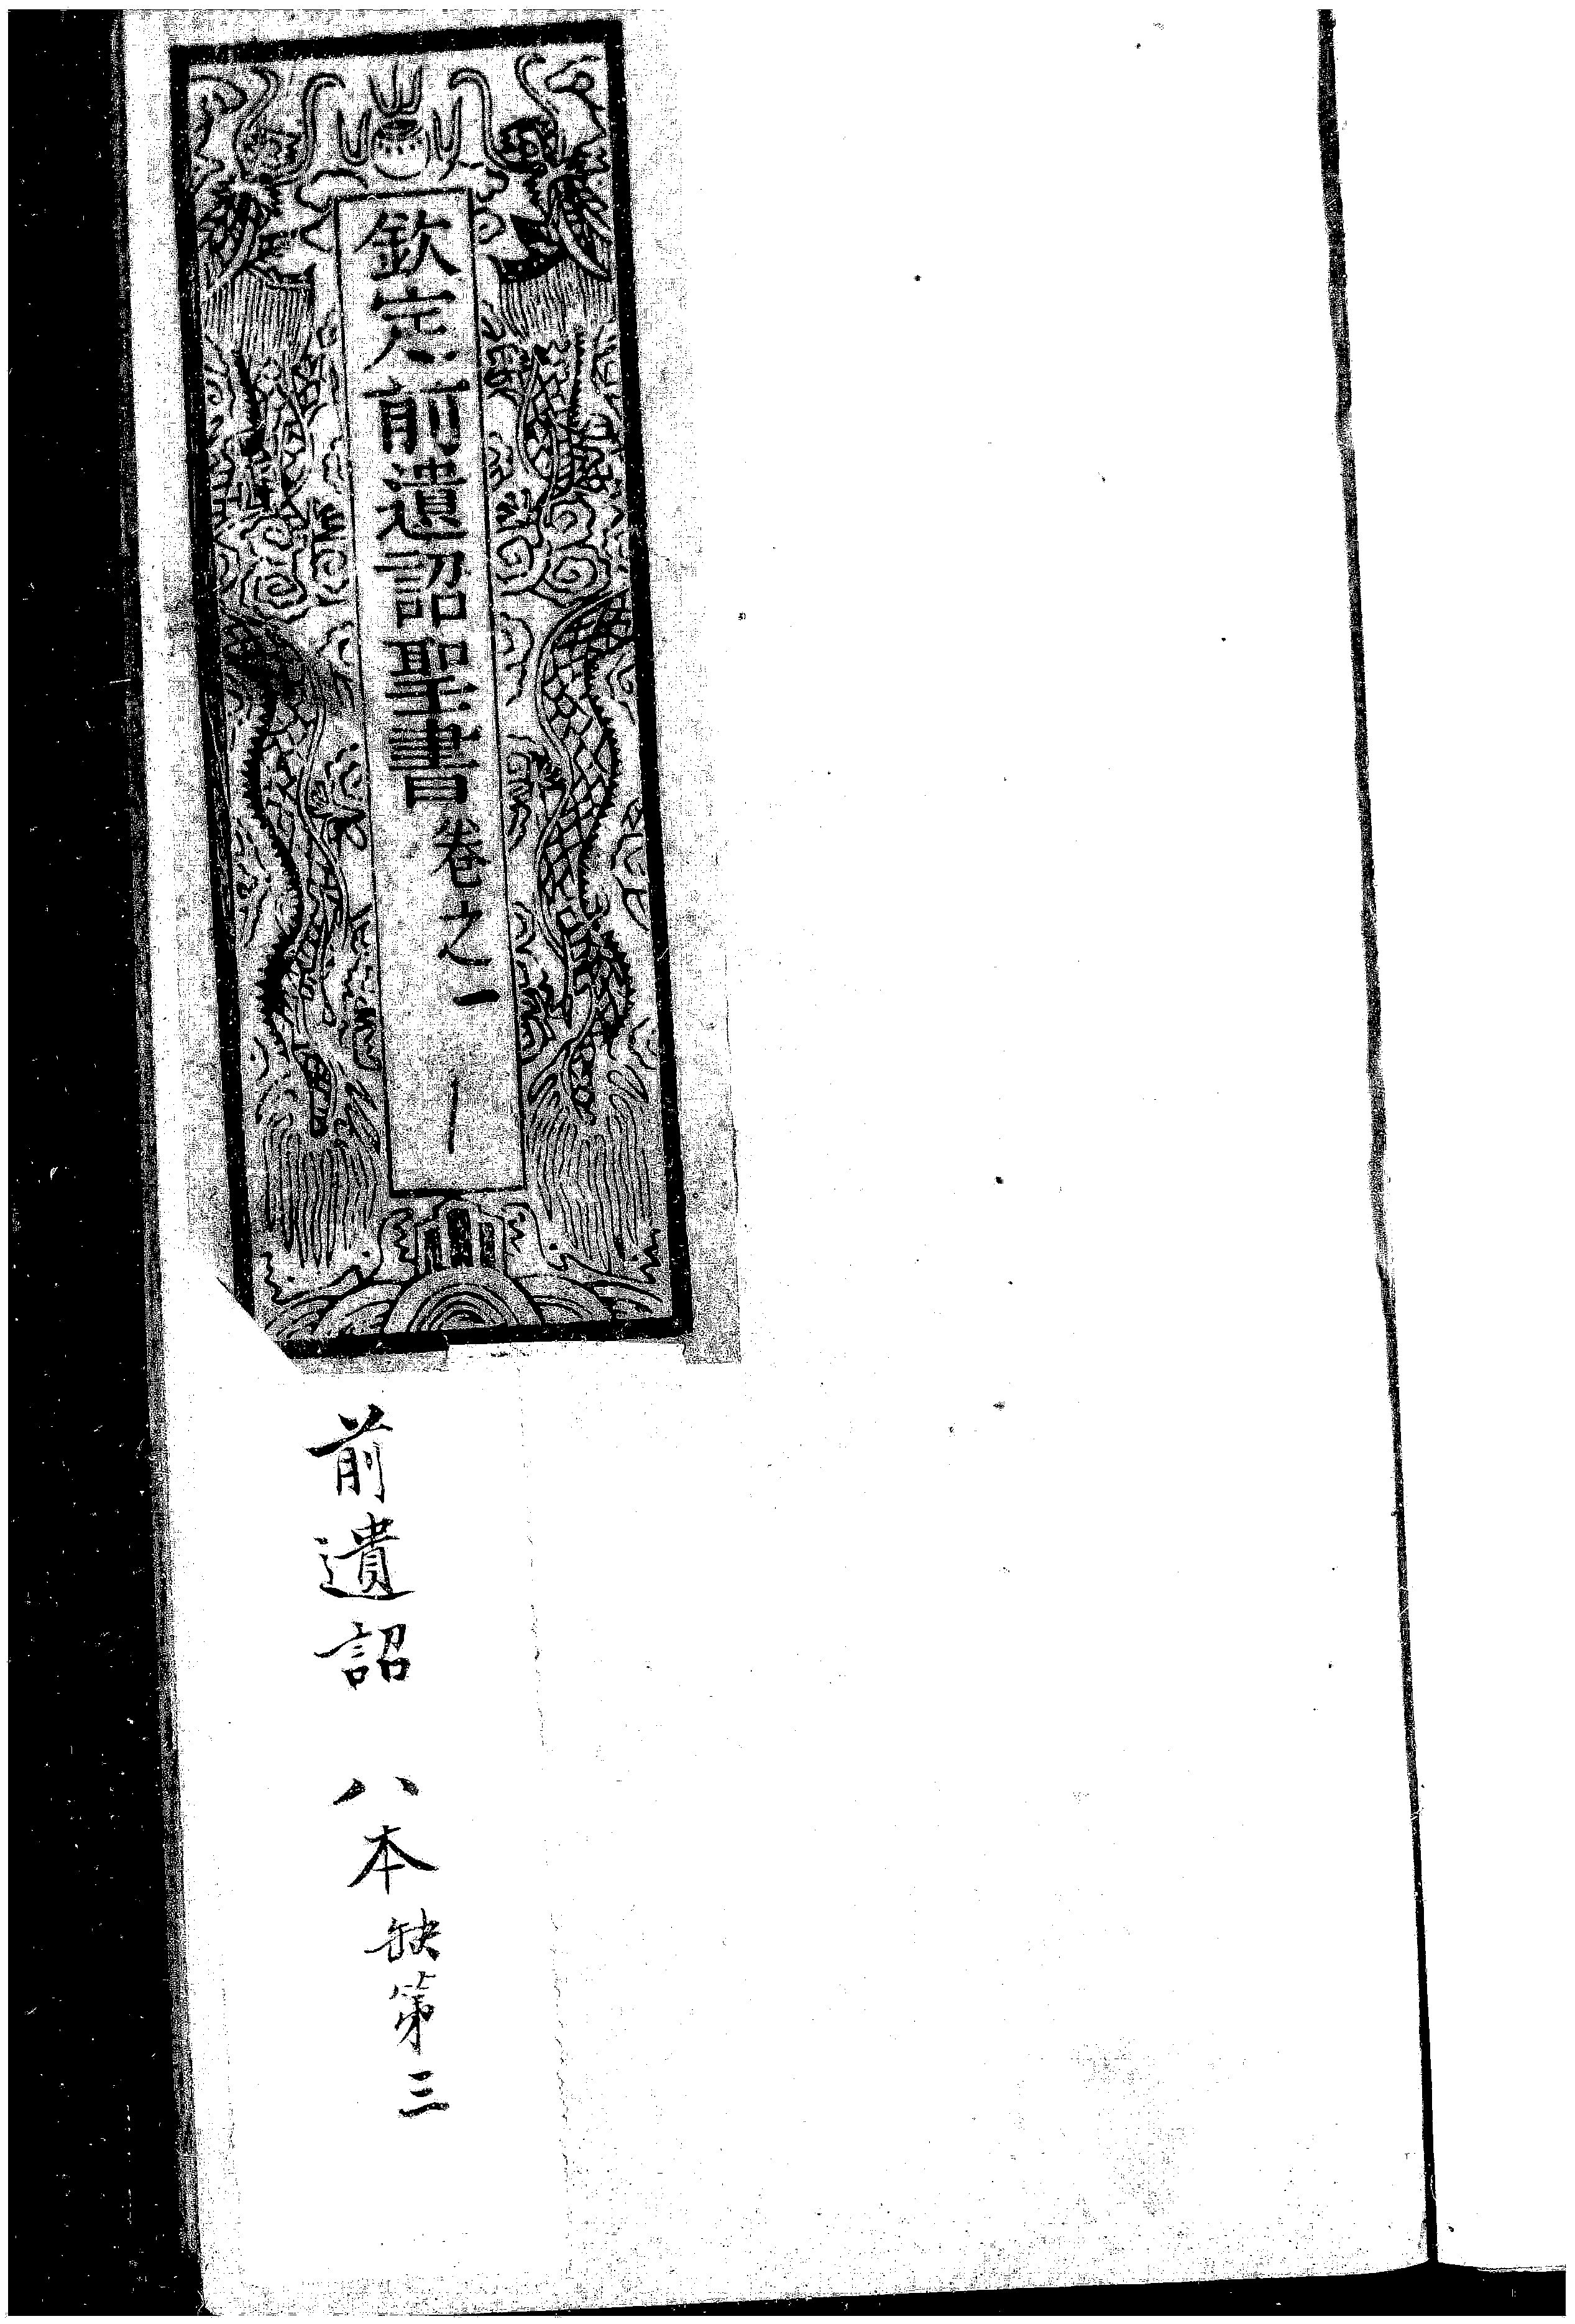 欽定前遺詔聖書卷之一
前遺詔 八本缺第三